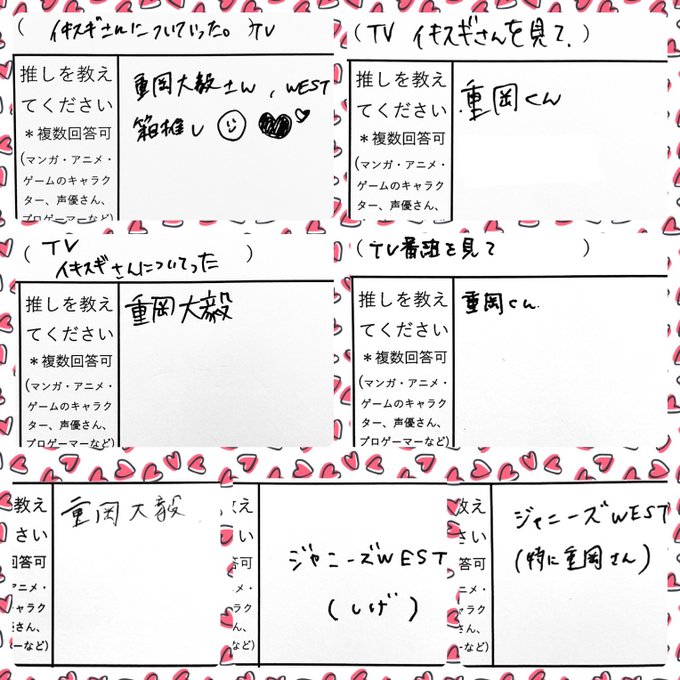 ( イキスギさんについていった。 ) TV
推しを教え
てください
＊複数回答可
(マンガ・アニメ・
ゲームのキャラク
ター、声優さん、
プロゲーマーなど)
重岡大毅さん、WEST
箱推し
( TV イキスギさんを見て、 )
推しを教え
てください
＊複数回答可
(マンガ・アニメ・
ゲームのキャラク
ター、声優さん、
プロゲーマーなど)
重岡くん
( TV
イキスギさんについてった )
推しを教え
てください
＊複数回答可
(マンガ・アニメ・
ゲームのキャラク
ター、声優さん、
プロゲーマーなど)
重岡大毅
( TV番組を見て )
推しを教え
てください
＊複数回答可
(マンガ・アニメ・
ゲームのキャラク
ター、声優さん、
プロゲーマーなど)
重岡くん.
教え
さい
回答可
アニメ・
キャラク
さん、
ーなど)
重岡大毅
え
い
可
メ・
ラク
ん、
など)
ジャニーズWEST
(しげ)
教え
さい
答可
ニメ・
ャラク
さん、
ーなど)
ジャニーズWEST
(特に重岡さん)